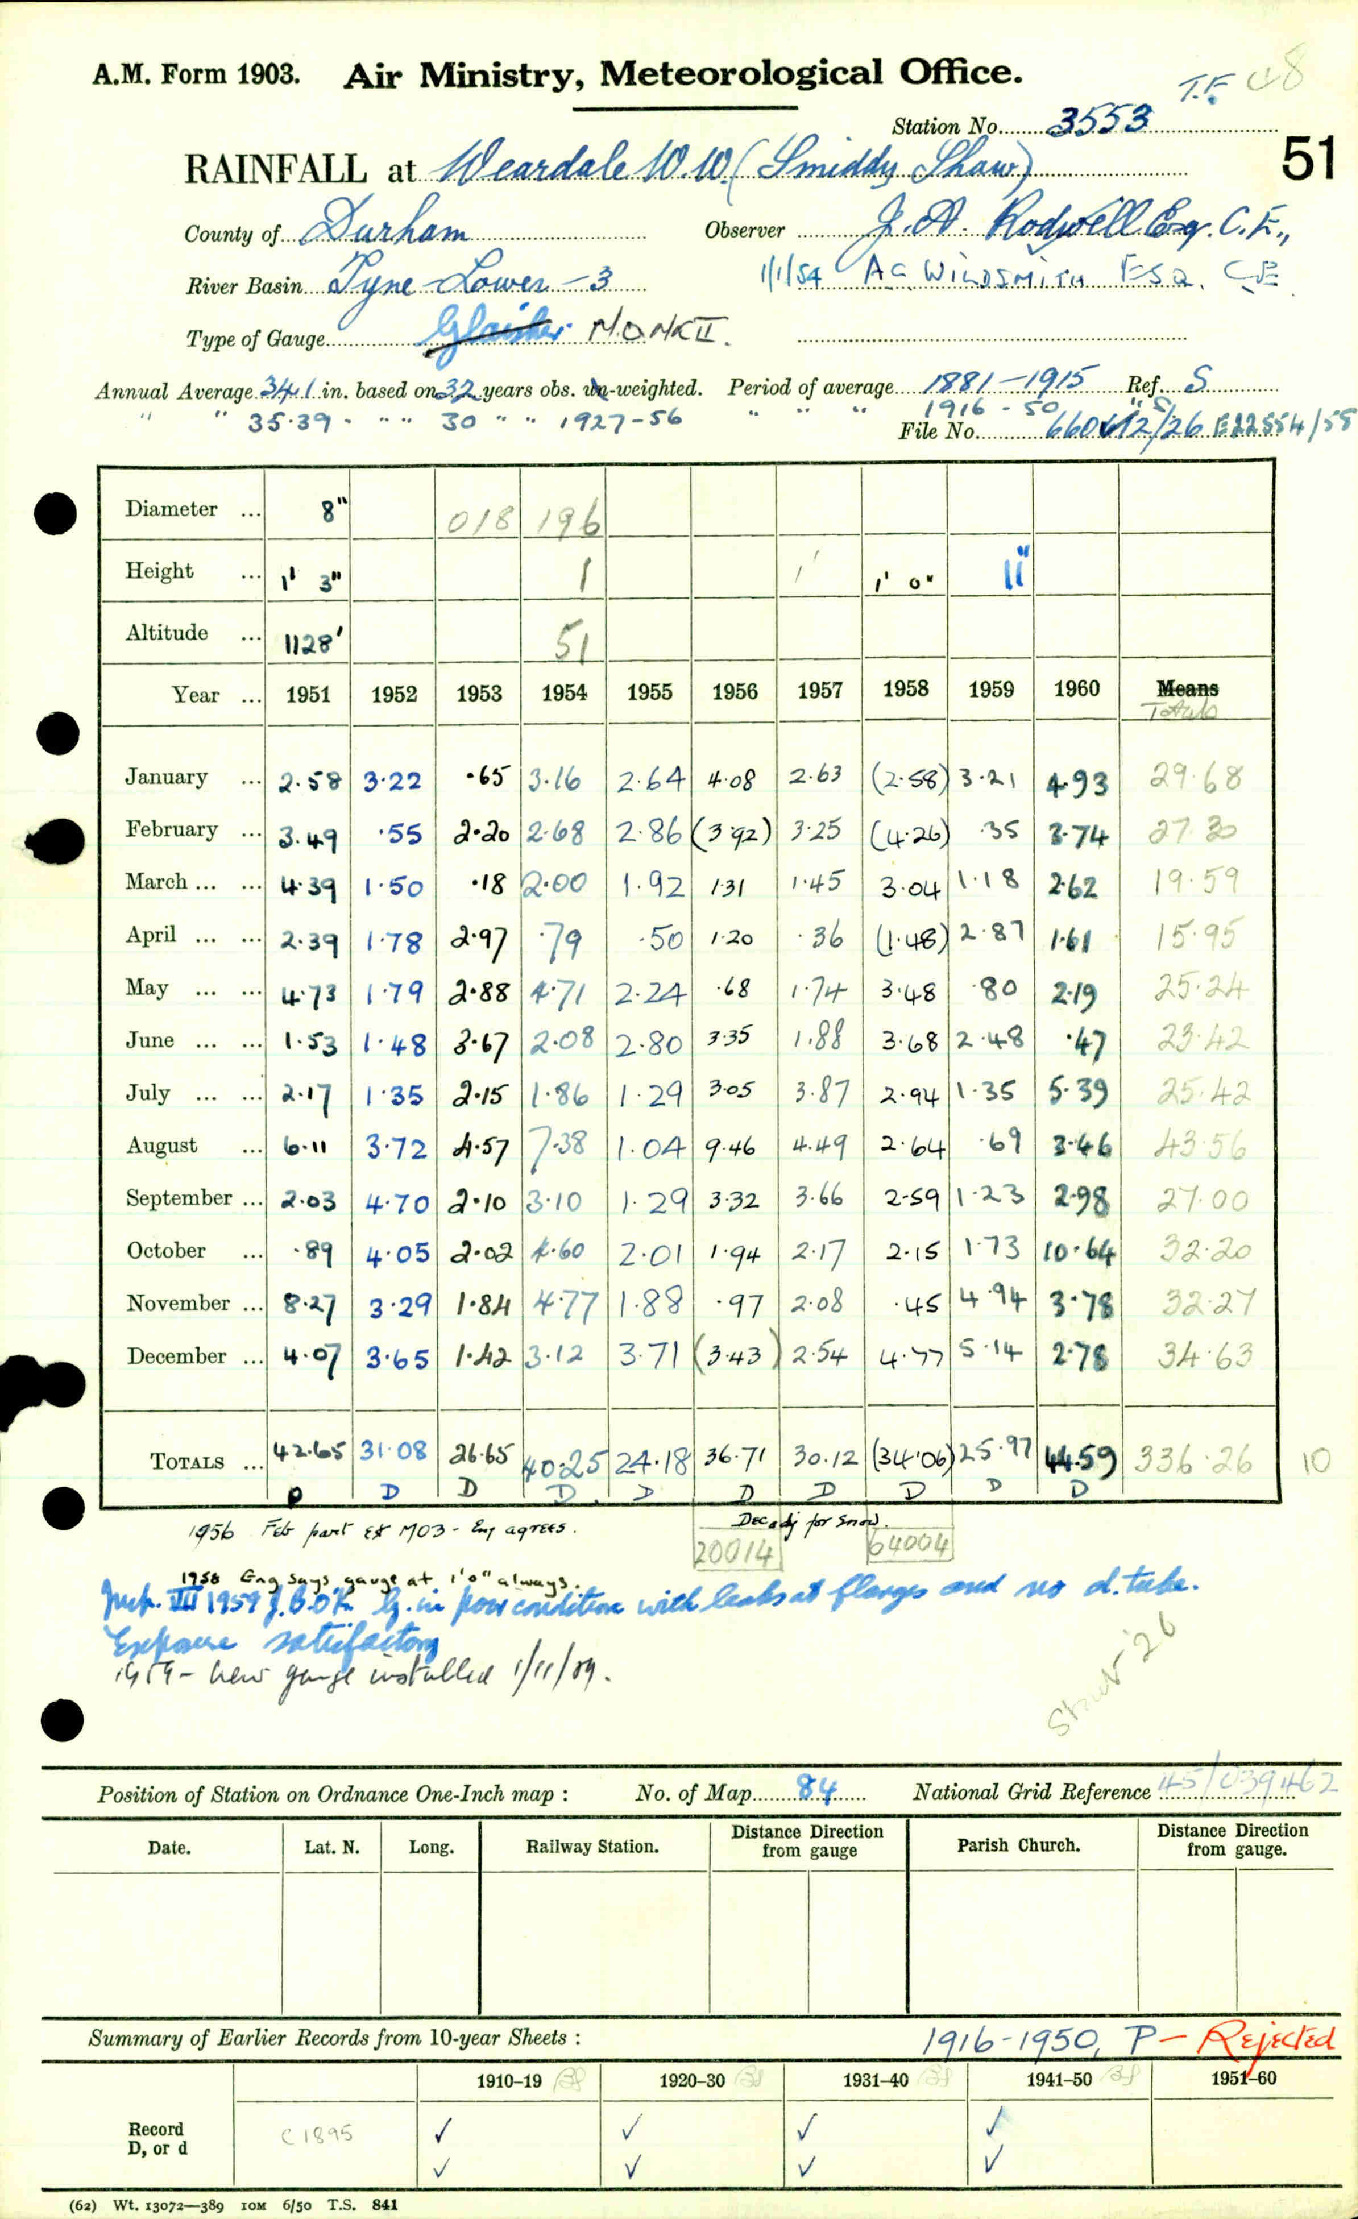 T.F. 48
A.M. Form 1903. Air Ministry, Meteorological Office.
Station No. 3553
51
RAINFALL at Weardale W.W. (Smiddy Shaw)
County of Durham Observer J. A. Rodwell Esq. C.E.,
River Basin Tyne Lower -3 1/1/54 A G WILDSMITH ESQ. CE
Type of Gauge Glaisher M.O. MK II.
Annual Average 34.1 in. based on 32 years obs. un-weighted. Period of average 1881-1915 Ref. S
" " 35.39 " " " 30 " " 1927-56 " " " 1916-50 " S.
File No. 660612/26 E22554/58
Diameter ... 8" 018 196
Height ... 1' 3" 1 1' 1' 0" 11"
Altitude ... 1128' 51
Year ... 1951 1952 1953 1954 1955 1956 1957 1958 1959 1960 Means
Totals
January ... 2.58 3.22 .65 3.16 2.64 4.08 2.63 (2.58) 3.21 4.93 29.68
February ... 3.49 .55 2.20 2.68 2.86 (3.92) 3.25 (4.26) .35 3.74 27.30
March ... ... 4.39 1.50 .18 2.00 1.92 1.31 1.45 3.04 1.18 2.62 19.59
April ... ... 2.39 1.78 2.97 .79 .50 1.20 .36 (1.48) 2.87 1.61 15.95
May ... ... 4.73 1.79 2.88 4.71 2.24 .68 1.74 3.48 .80 2.19 25.24
June ... ... 1.53 1.48 3.67 2.08 2.80 3.35 1.88 3.68 2.48 .47 23.42
July ... ... 2.17 1.35 2.15 1.86 1.29 3.05 3.87 2.94 1.35 5.39 25.42
August ... 6.11 3.72 4.57 7.38 1.04 9.46 4.49 2.64 .69 3.46 43.56
September ... 2.03 4.70 2.10 3.10 1.29 3.32 3.66 2.59 1.23 2.98 27.00
October ... .89 4.05 2.02 4.60 2.01 1.94 2.17 2.15 1.73 10.64 32.20
November ... 8.27 3.29 1.84 4.77 1.88 .97 2.08 .45 4.94 3.78 32.27
December ... 4.07 3.65 1.42 3.12 3.71 (3.43) 2.54 4.77 5.14 2.78 34.63
TOTALS ... 42.65 31.08 26.65 40.25 24.18 36.71 30.12 (34.06) 25.97 44.59 336.26 10
D D D D D D D D D D
1956 Feb part ex MO3 - Eng agrees. Dec adj for snow.
20014 64004
1958 Eng says gauge at 1'0" always.
Insp. VII 1959 J.B.O'K G. in poor condition with leaks at flanges and no d. tube.
Exposure satisfactory
1959 - new gauge installed 1/11/59.
Position of Station on Ordnance One-Inch map : No. of Map 84 National Grid Reference 45/039462
Date. Lat. N. Long. Railway Station. Distance Direction from gauge Parish Church. Distance Direction from gauge.
Summary of Earlier Records from 10-year Sheets : 1916-1950, P - Rejected
1910–19 1920–30 1931–40 1941–50 1951–60
Record c 1895 ✓ ✓ ✓ ✓
D, or d ✓ ✓ ✓ ✓
(62) Wt. 13072—389 10M 6/50 T.S. 841